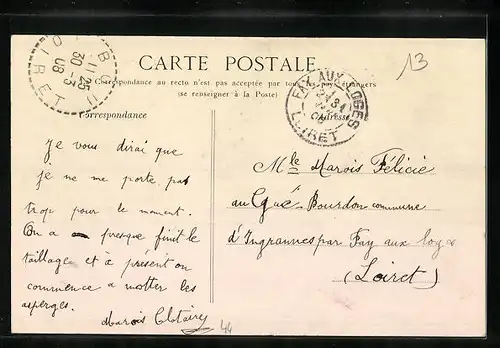 CARTE POSTALE
13
La Correspondance au recto n'est pas acceptée par tous les pays étrangers
(se renseigner à la Poste)
Correspondance
Adresse
FAY AUX LOGES
LOIRET
11 25
30 -3
08
LOIRET
Je vous dirai que
je ne me porte pas
trop pour le moment.
On a presque finit le
taillage et à présent on
commence a motter les
asperges.
Marois Clotaire
44
Mlle Marois Félicie
au Gué Bourdon commune
d'Ingrannes par Fay aux loges
(Loiret)